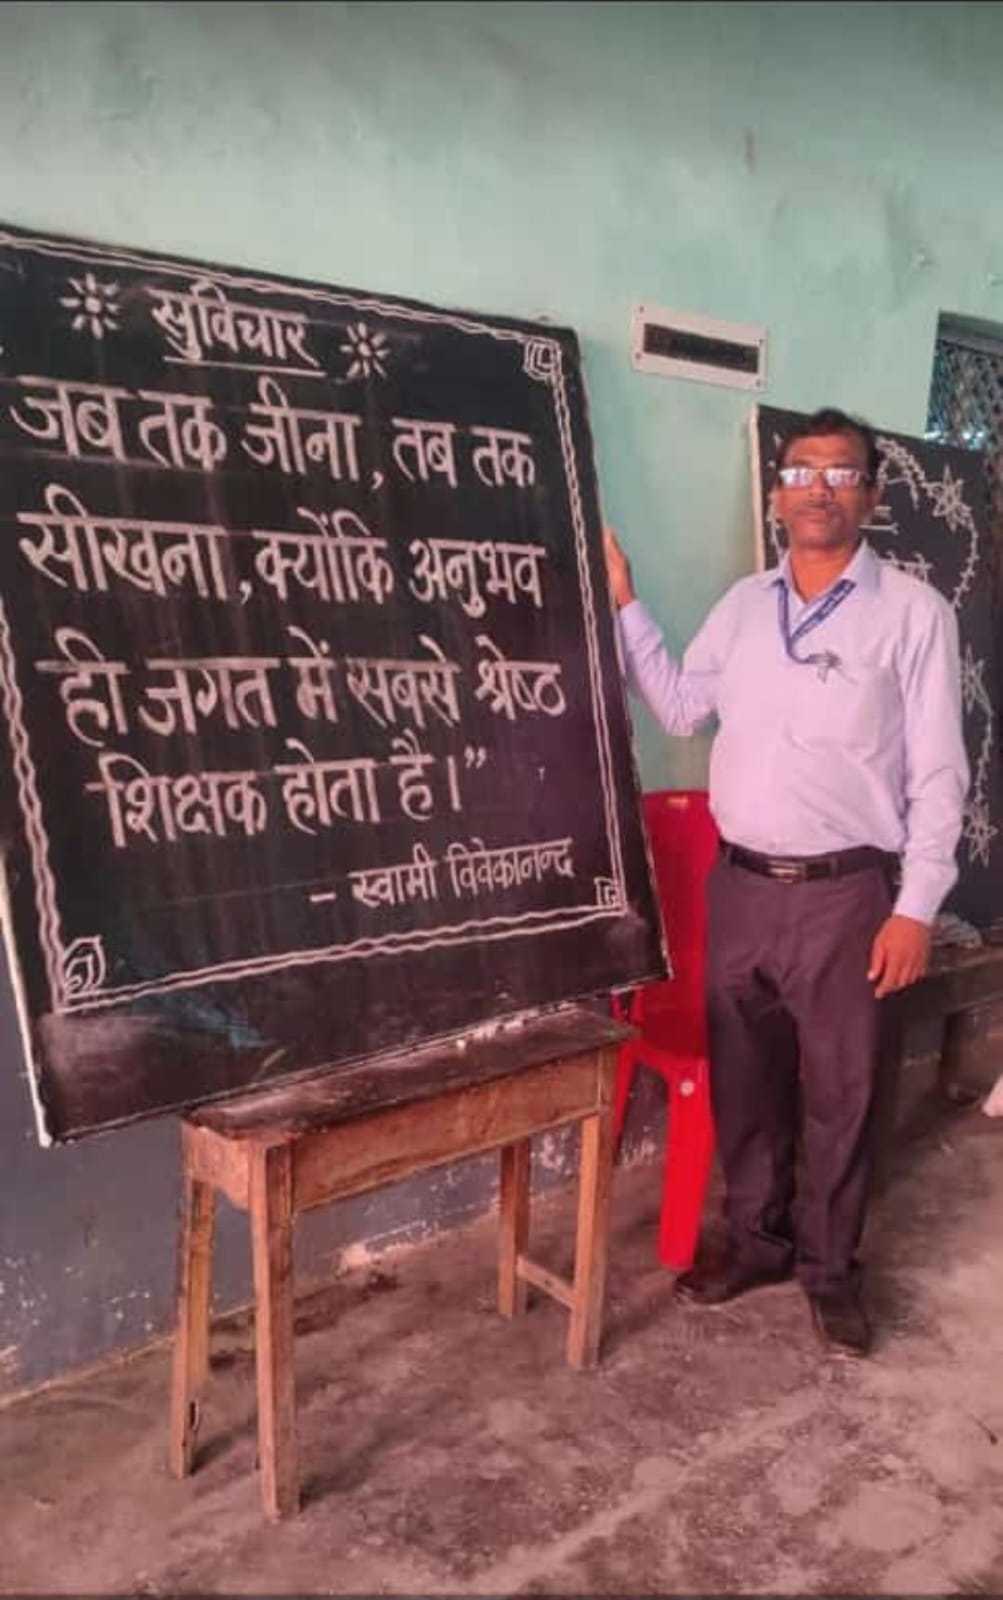 सुविचार
जब तक जीना, तब तक
सीखना, क्योंकि अनुभव
ही जगत में सबसे श्रेष्ठ
शिक्षक होता है।”
- स्वामी विवेकानन्द